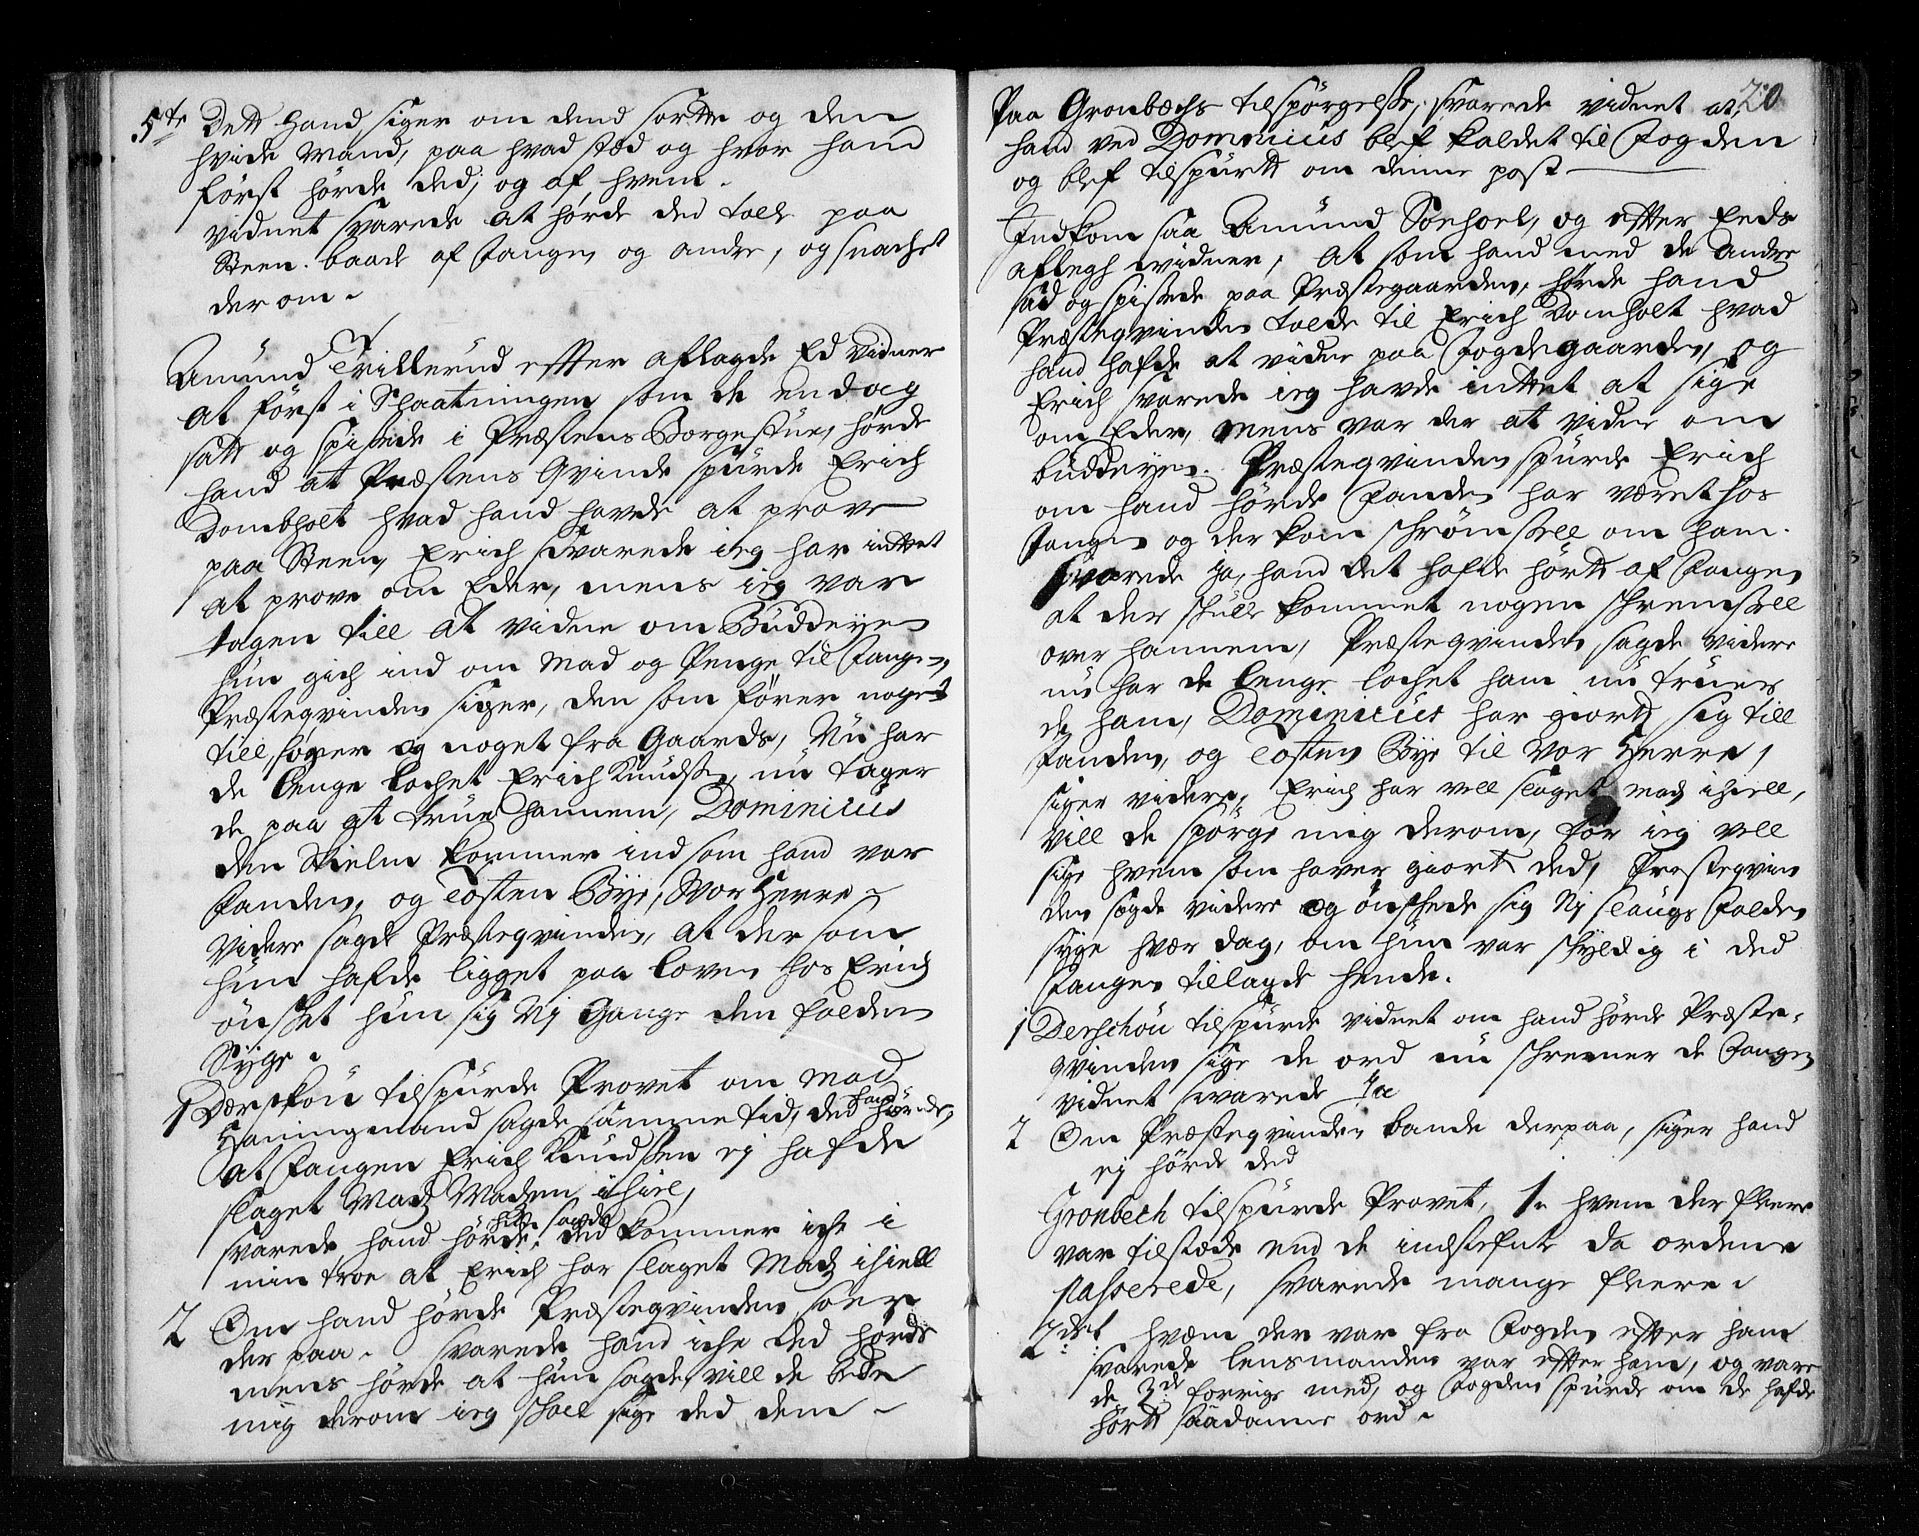 5te Dett hand siger om dend sortte og den
hvide Mand, paa hvad stæd og hvor hand
først hørde ded, og af hvem.
Vidnet svarede at hørde ded talle paa
Steen baade af Fangen og andre, og snachet
der om.
Amund Trillerud effter aflagde Ed vidner
at først i Schaatningen som de en dag
satt og spisede i Præstens Borgestue, hørde
hand at Præstens Qvinde spurde Erich
Dombholt hvad hand havde at prove
paa Steen, Erich svarede ieg har inttet
at prove om Eder, mens ieg var
tagen till at vidne om Buddeyen
hun gich ind om Mad og Penge til Fangen,
Præsteqvinden siger, den som fører noget
till, fører og noget fra Gaards, Nu har
de lenge lochet Erich Knudsen, nu tager
de paa at true hannem, Dominicus
den Skielm kommer ind som hand var
Fanden, og Tosten Bye, Vor Herre
Videre sagde Præsteqvinden, at der som
hun hafde ligget paa Loven hos Erich
ønsket hun sig Nj Gange den falden
Syge.
1 Derschou tilspurde Provet om Mad
Haningmand sagde samme tid, ded hand hørede,
at Fangen Erich Knudssen ej hafde
slaget Madz Madzen ihiel,
svarede hand hørde hun sagde ded kommer iche i
min troe at Erich har slaget Madz ihiell
2 Om hand hørde Præsteqvinden soer
der paa. svarede hand iche ded hørde
mens hørde at hun sagde, vill de bede
mig derom ieg schall sige ded dem
20
Paa Gronbechs tilspørgelsse, svarede vidnet at
hand ved Dominicus blef kaldet til Fogden
og blef tilspurtt om denne post
Indkom saa Amund Soehoel, og effter Eeds
aflegh vidner, At som hand med de andre
sad og spissede paa Præstegaarden, hørde hand
Præsteqvinden talde til Erich Domholt hvad
hand hafde at vidne paa Fogdegaarden, og
Erich svarede ieg havde inttet at sige
om Eder, Mens var der at vidne om
buddeyen. Præsteqvinden spurde Erich
om hand hørde Fanden har været hos
Fangen og der kom schrømssell om ham.
Svarede Ja, hand det hafde hørtt af Fangen
at der skulle kommet nogen schremssell
over hannem, Præsteqvinden sagde videre
nu har de lenge lochet ham nu truer
de ham, Dominicus har giortt sig till
Fanden, og Tosten Bye til vor Herre,
siger videre, Erich har vell slaget Madz ihiell,
Vill de spørge mig derom, før ieg vell
sige hvem som haver giort ded, Præsteqvin
den sagde videre og ønschede sig Nj slaugs Falden
syge hvær dag, om hun var schyldig i ded
Fangen tillagde hende.
1 Derschou tilspurde vidnet om hand hørde Præste-
qvinden sige de ord nu schremer de Fangen
vidnet svarede Ja
2 Om Præsteqvinden bande derpaa, siger hand
ej hørde ded
Gronbech tilspurde Provet, 1. hvem der flere
var tilstæde end de indstefnte da ordene
passerede, svarede mange flere.
2det hvem der var fra Fogden effter ham
svarede lensmanden var effter ham, og vare
de 3de forrige med, og Fogden spurde om de hafde
hørtt saadanne ord.